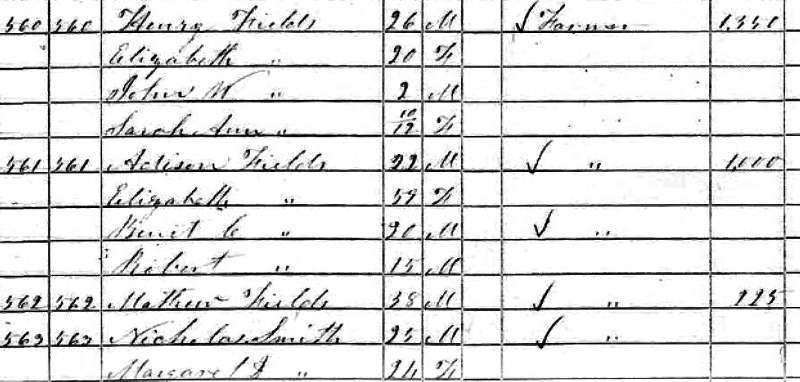 560 560 Henry Fields 26 M ✓ Farmer 1,350
Elizabeth " 20 F
John W " 2 M
Sarah Ann " 10/12 F
561 561 Adison Fields 22 M ✓ " 1,000
Elizabeth " 59 F
C " 20 M ✓ "
Robert " 15 M
562 562 Mathew Fields 38 M ✓ " 225
563 563 Nicholas Smith 25 M ✓ "
Margaret J " 24 F